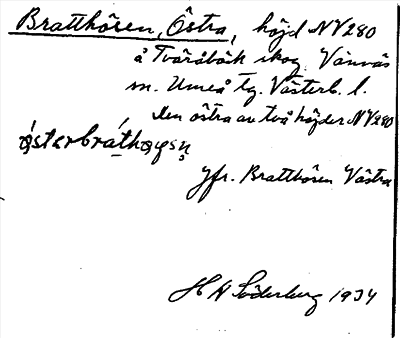 Bratthösen, Östra, höjd NV280
å Tväråböle skog. Vännäs
sn. Umeå tg. Västerb. l.
den östra av två höjder NV280
Jfr. Bratthösen Västra
H A Söderberg 1934